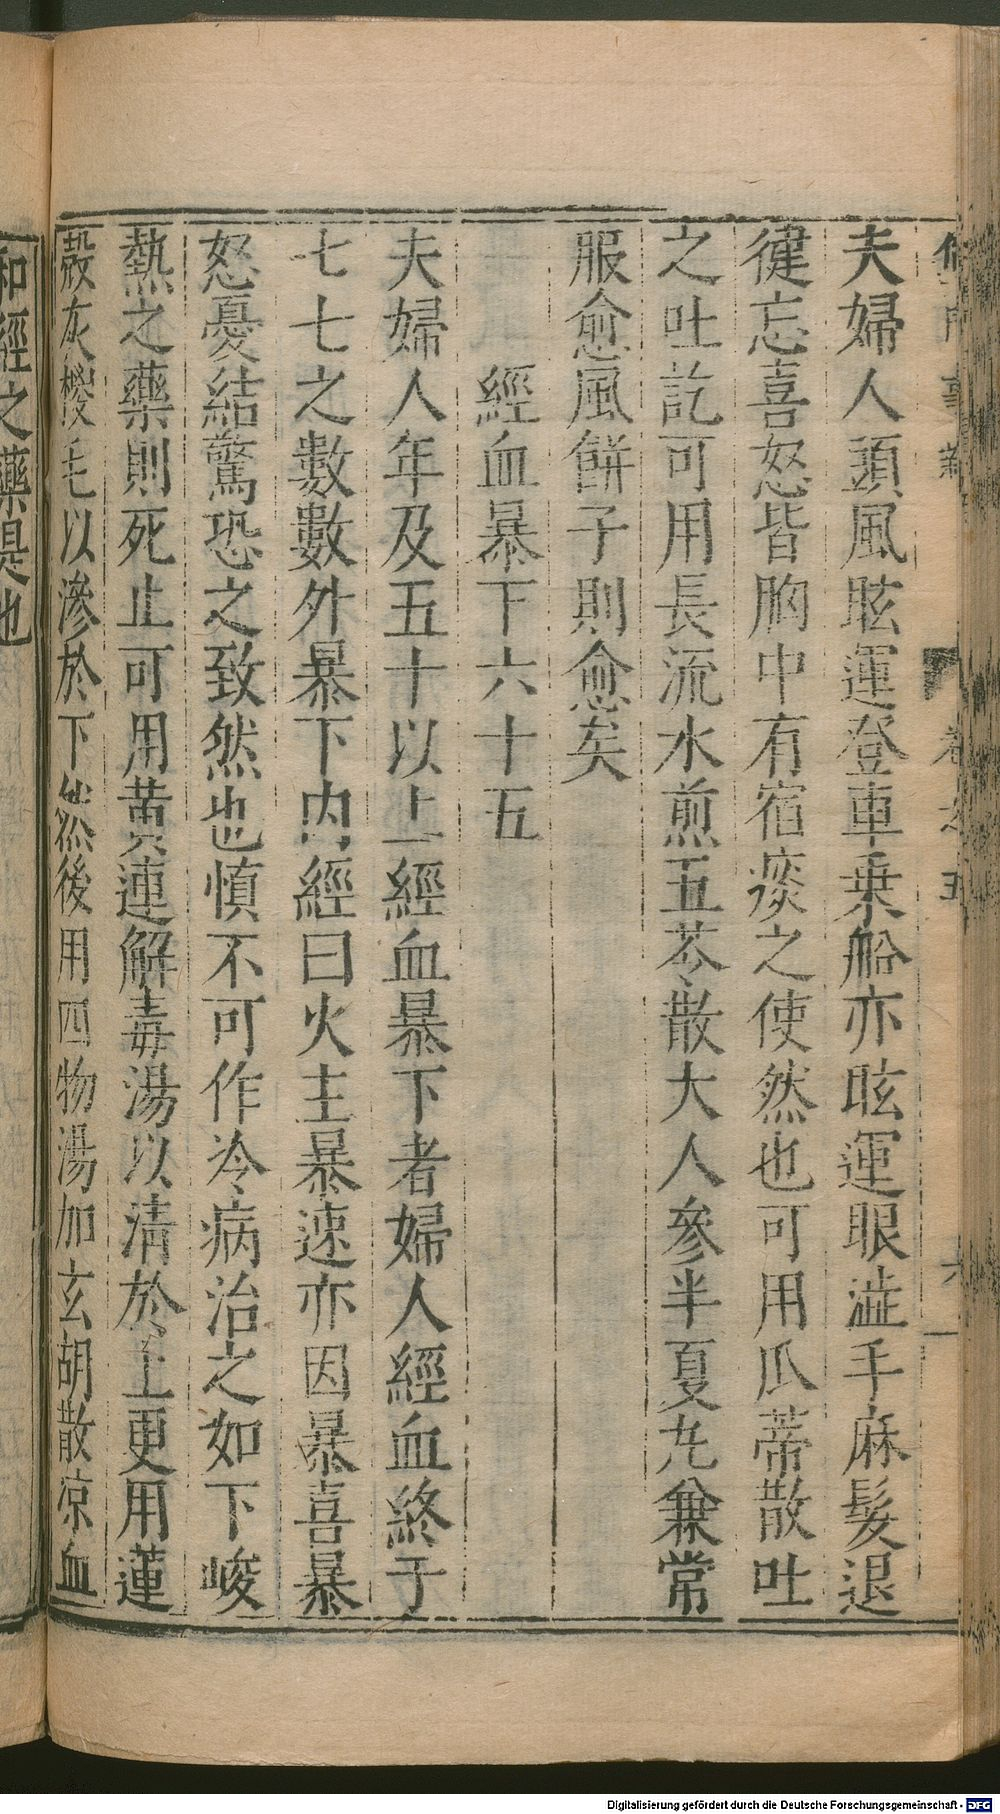 夫婦人頭風眩運登車乗船亦眩運眼澁手麻髮退
徤忘喜怒皆胸中有宿痰之使然也可用瓜蒂散吐
之吐訖可用長流水煎五苓散大人參半夏丸兼常
服愈風餅子則愈矣
經血暴下六十五
夫婦人年及五十以上經血暴下者婦人經血終于
七七之數數外暴下内經曰火主暴速亦因暴喜暴
怒憂結驚恐之致然也慎不可作冷病治之如下峻
熱之藥則死止可用黃連解毒湯以清於上更用蓮
殼灰椶毛以滲於下然後用四物湯加玄胡散凉血
和經之藥是也
卷之五
六
Digitalisierung gefördert durch die Deutsche Forschungsgemeinschaft - DFG